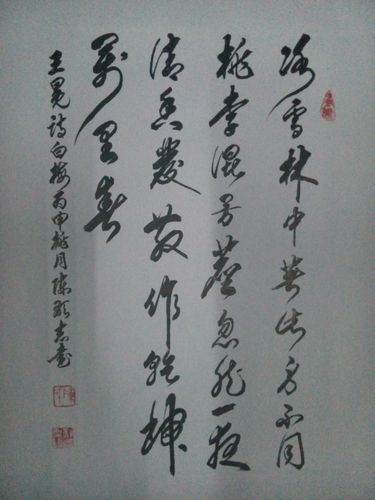 冰雪林中著此身不同
桃李混芳塵忽然一夜
清香發散作乾坤
萬里春
王冕詩白梅丙申桃月陳志書